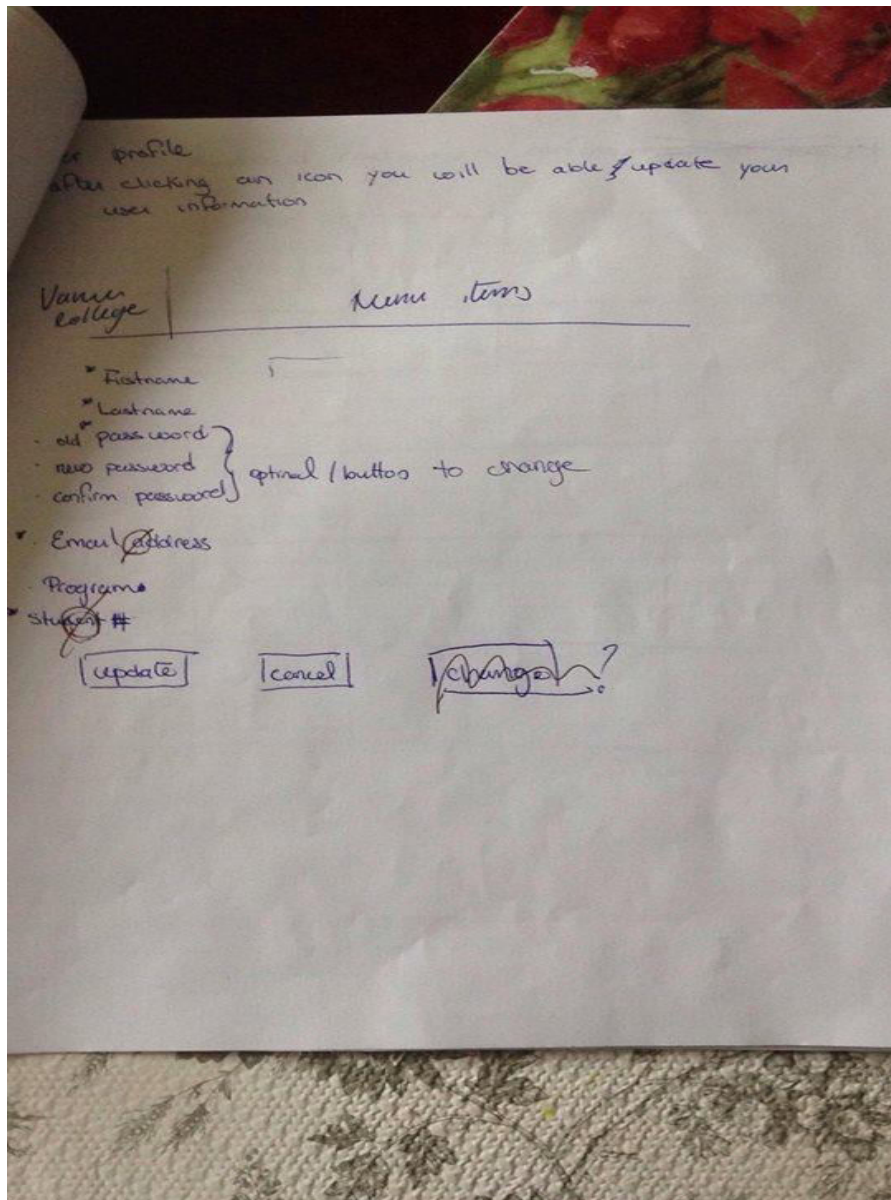 er profile
after clicking an icon you will be able update your
user information
Vanier
College
Menu items
* Firstname
* Lastname
. old * password
. new password
. confirm password
optinal / button to change
* . Email address
. Program
* Student #
update
cancel
change ?